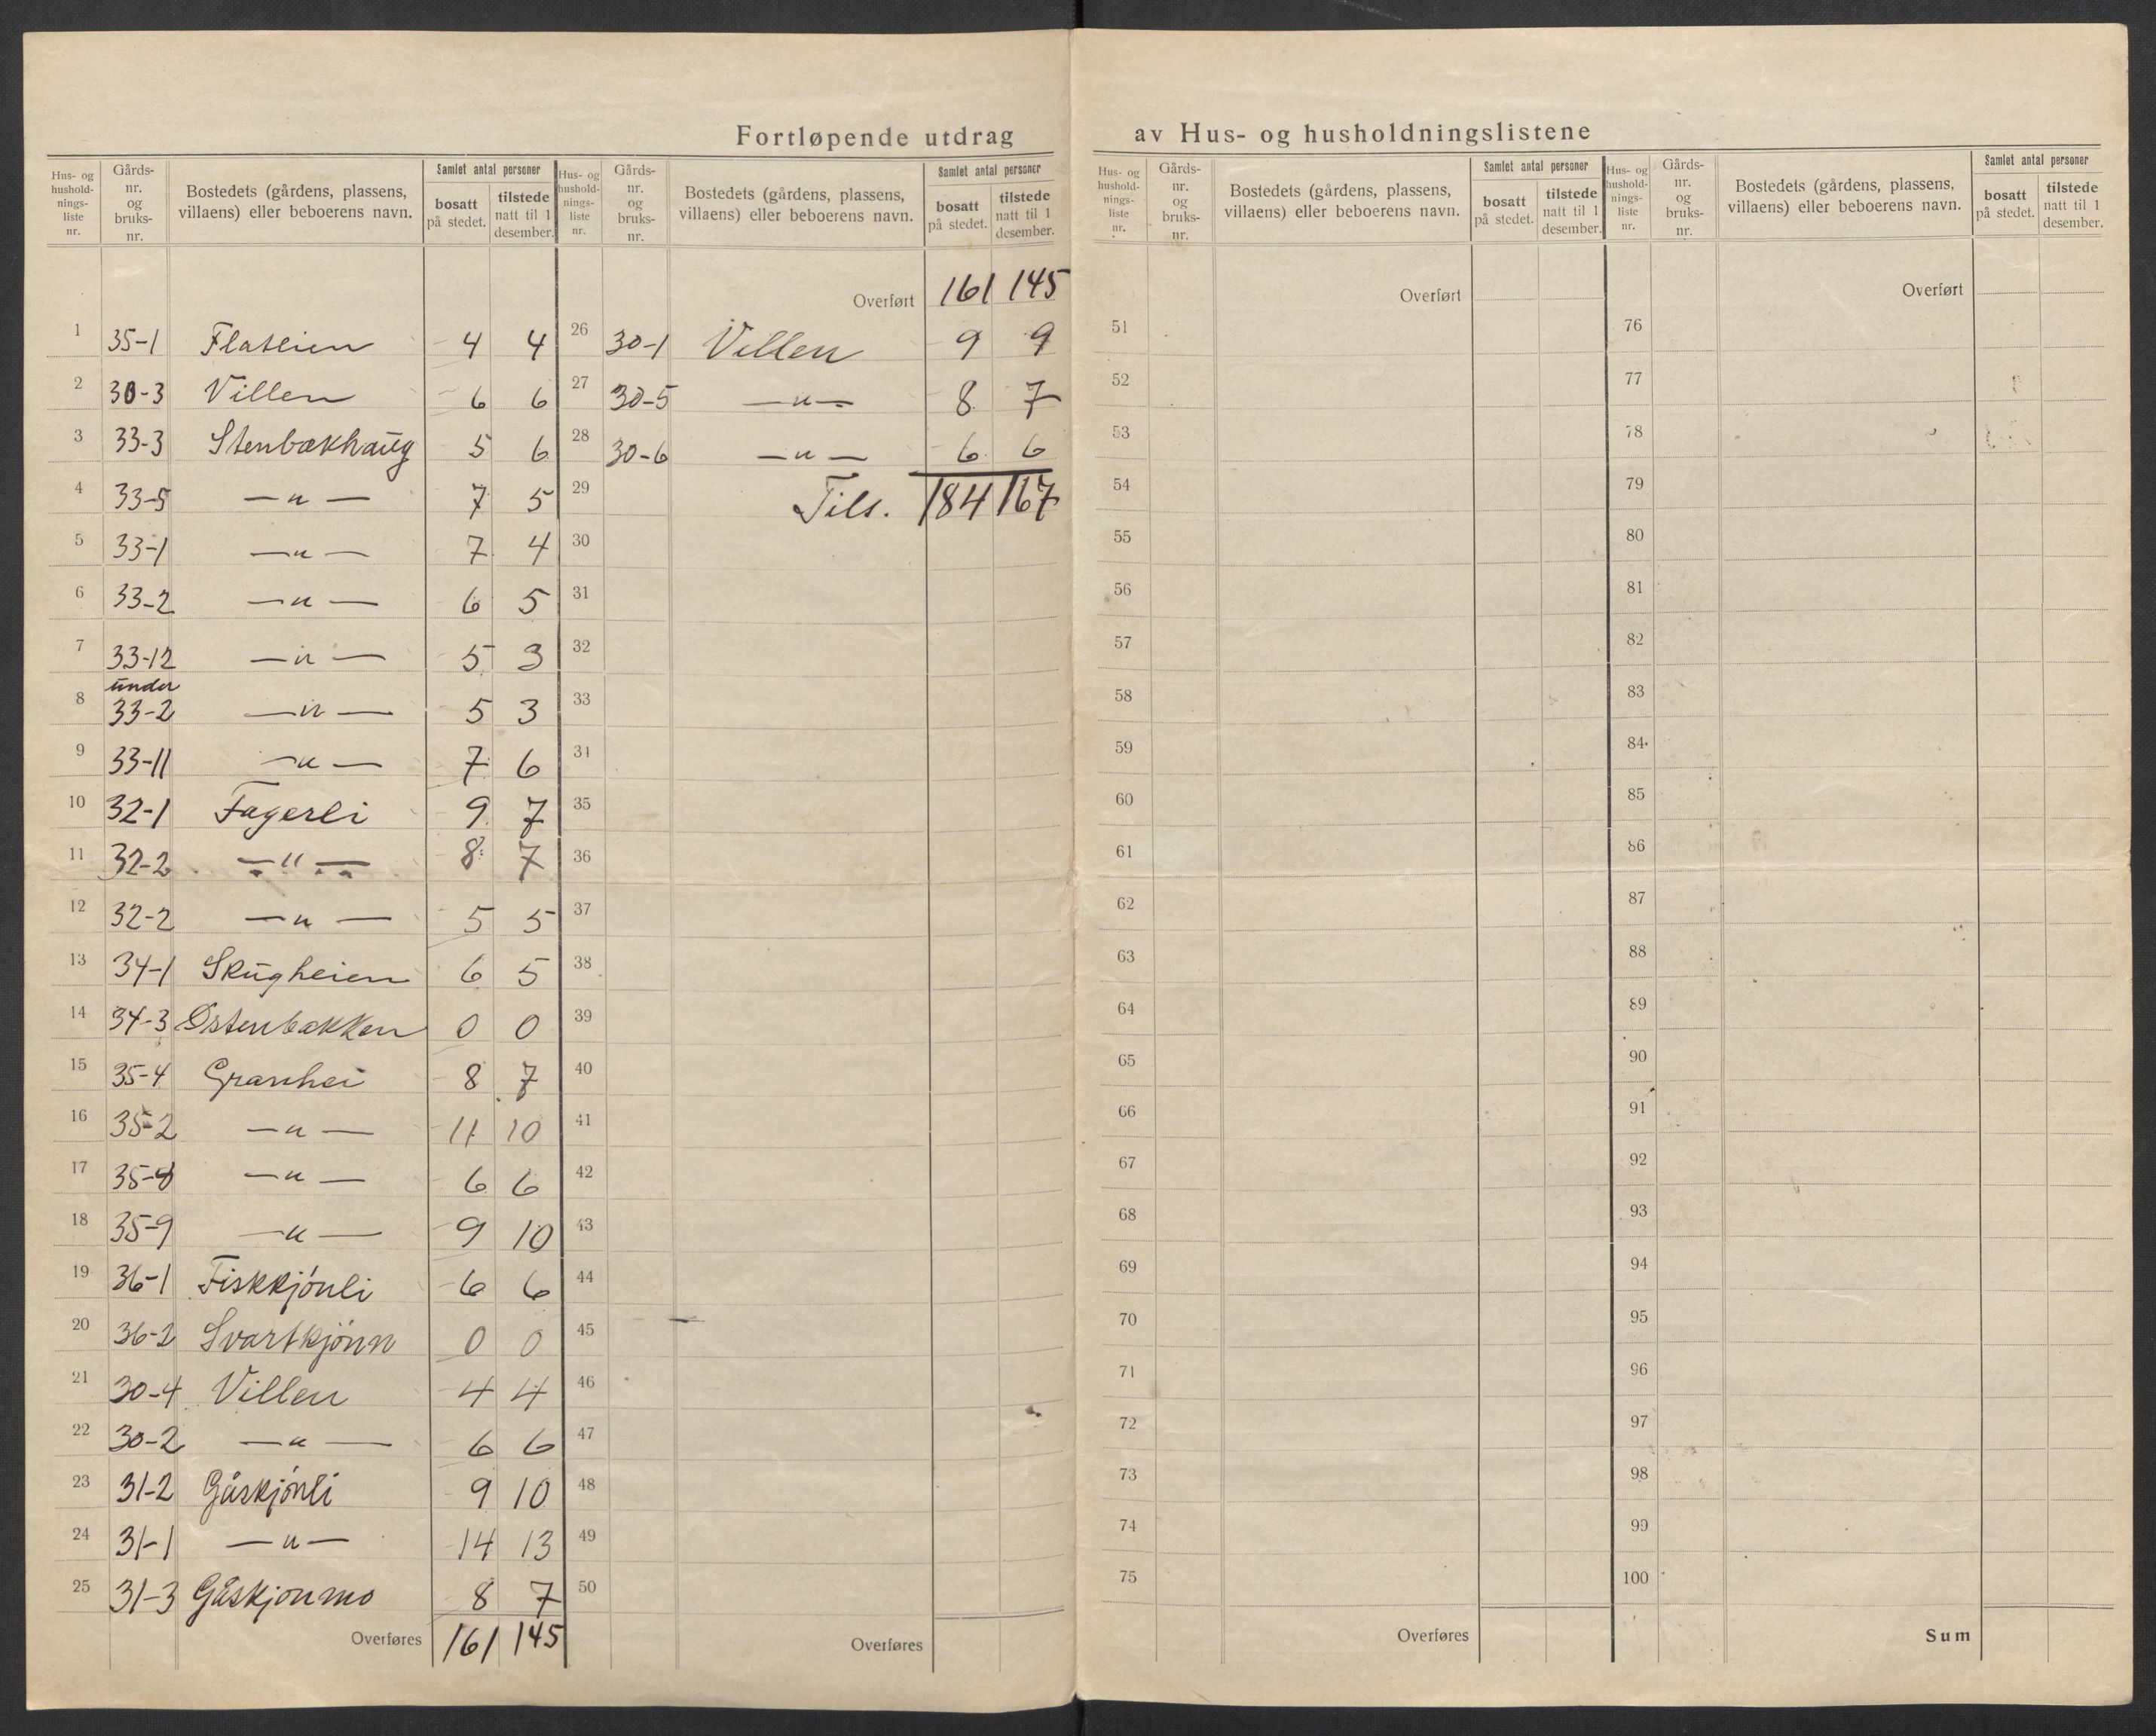 Fortløpende utdrag av Hus- og husholdningslistene
Hus- og hushold-nings-liste nr. Gårds-nr. og bruks-nr. Bostedets (gårdens, plassens, villaens) eller beboerens navn. Samlet antal personer bosatt på stedet. tilstede natt til 1 desember.
1 35-1 Flatlien 4 4
2 30-3 Villen 6 6
3 33-3 Stenbækhaug 5 6
4 33-5 —u— 7 5
5 33-1 —u— 7 4
6 33-2 —u— 6 5
7 33-12 —u— 5 3
8 under 33-2 —u— 5 3
9 33-11 —u— 7 6
10 32-1 Fagerli 9 7
11 32-2 —"— 8 7
12 32-2 —u— 5 5
13 34-1 Skugheien 6 5
14 34-3 Østenbakken 0 0
15 35-4 Granhei 8 7
16 35-2 —u— 11 10
17 35-8 —u— 6 6
18 35-9 —u— 9 10
19 36-1 Fiskkjónli 6 6
20 36-2 Svartkjónn 0 0
21 30-4 Villen 4 4
22 30-2 —u— 6 6
23 31-2 Gåskjónli 9 10
24 31-1 —u— 14 13
25 31-3 Gåskjonmo 8 7
Overføres 161 145
Hus- og hushold-nings-liste nr. Gårds-nr. og bruks-nr. Bostedets (gårdens, plassens, villaens) eller beboerens navn. Samlet antal personer bosatt på stedet. tilstede natt til 1 desember.
Overført 161 145
26 30-1 Villen 9 9
27 30-5 —u— 8 7
28 30-6 —u— 6 6
29 Tils. 184 167
30
31
32
33
34
35
36
37
38
39
40
41
42
43
44
45
46
47
48
49
50
Overføres
Hus- og hushold-nings-liste nr. Gårds-nr. og bruks-nr. Bostedets (gårdens, plassens, villaens) eller beboerens navn. Samlet antal personer bosatt på stedet. tilstede natt til 1 desember.
Overført
51
52
53
54
55
56
57
58
59
60
61
62
63
64
65
66
67
68
69
70
71
72
73
74
75
Overføres
Hus- og hushold-nings-liste nr. Gårds-nr. og bruks-nr. Bostedets (gårdens, plassens, villaens) eller beboerens navn. Samlet antal personer bosatt på stedet. tilstede natt til 1 desember.
Overført
76
77
78
79
80
81
82
83
84
85
86
87
88
89
90
91
92
93
94
95
96
97
98
99
100
Sum